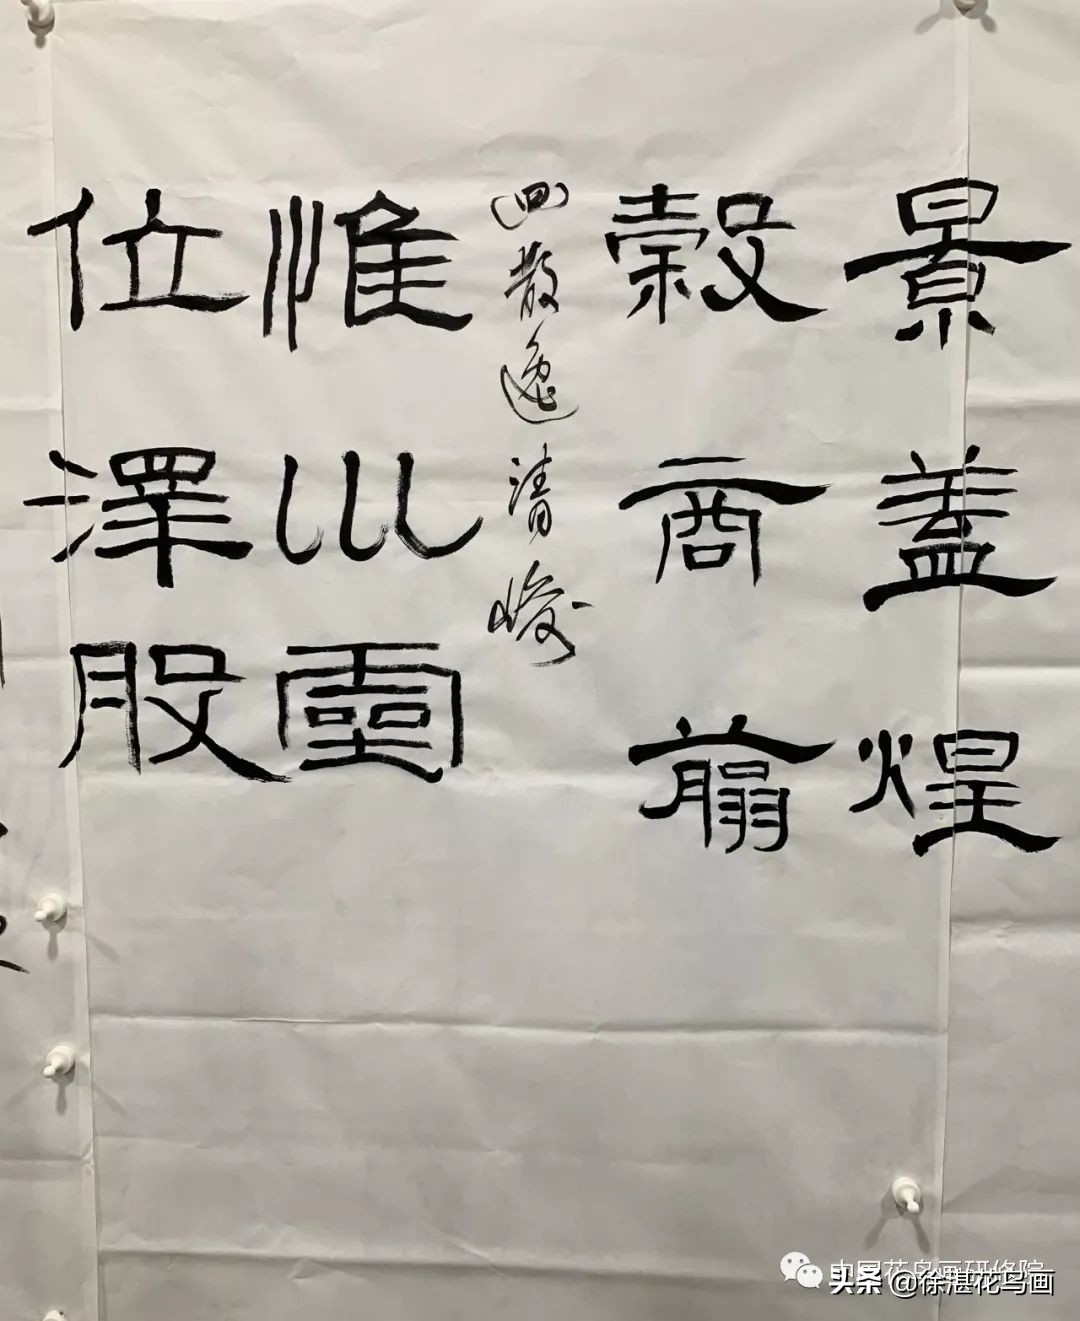 景盖煌
穀商萠
四散逸清峻
惟川靈
位澤股
中国花鸟画研修院
头条 @徐湛花鸟画